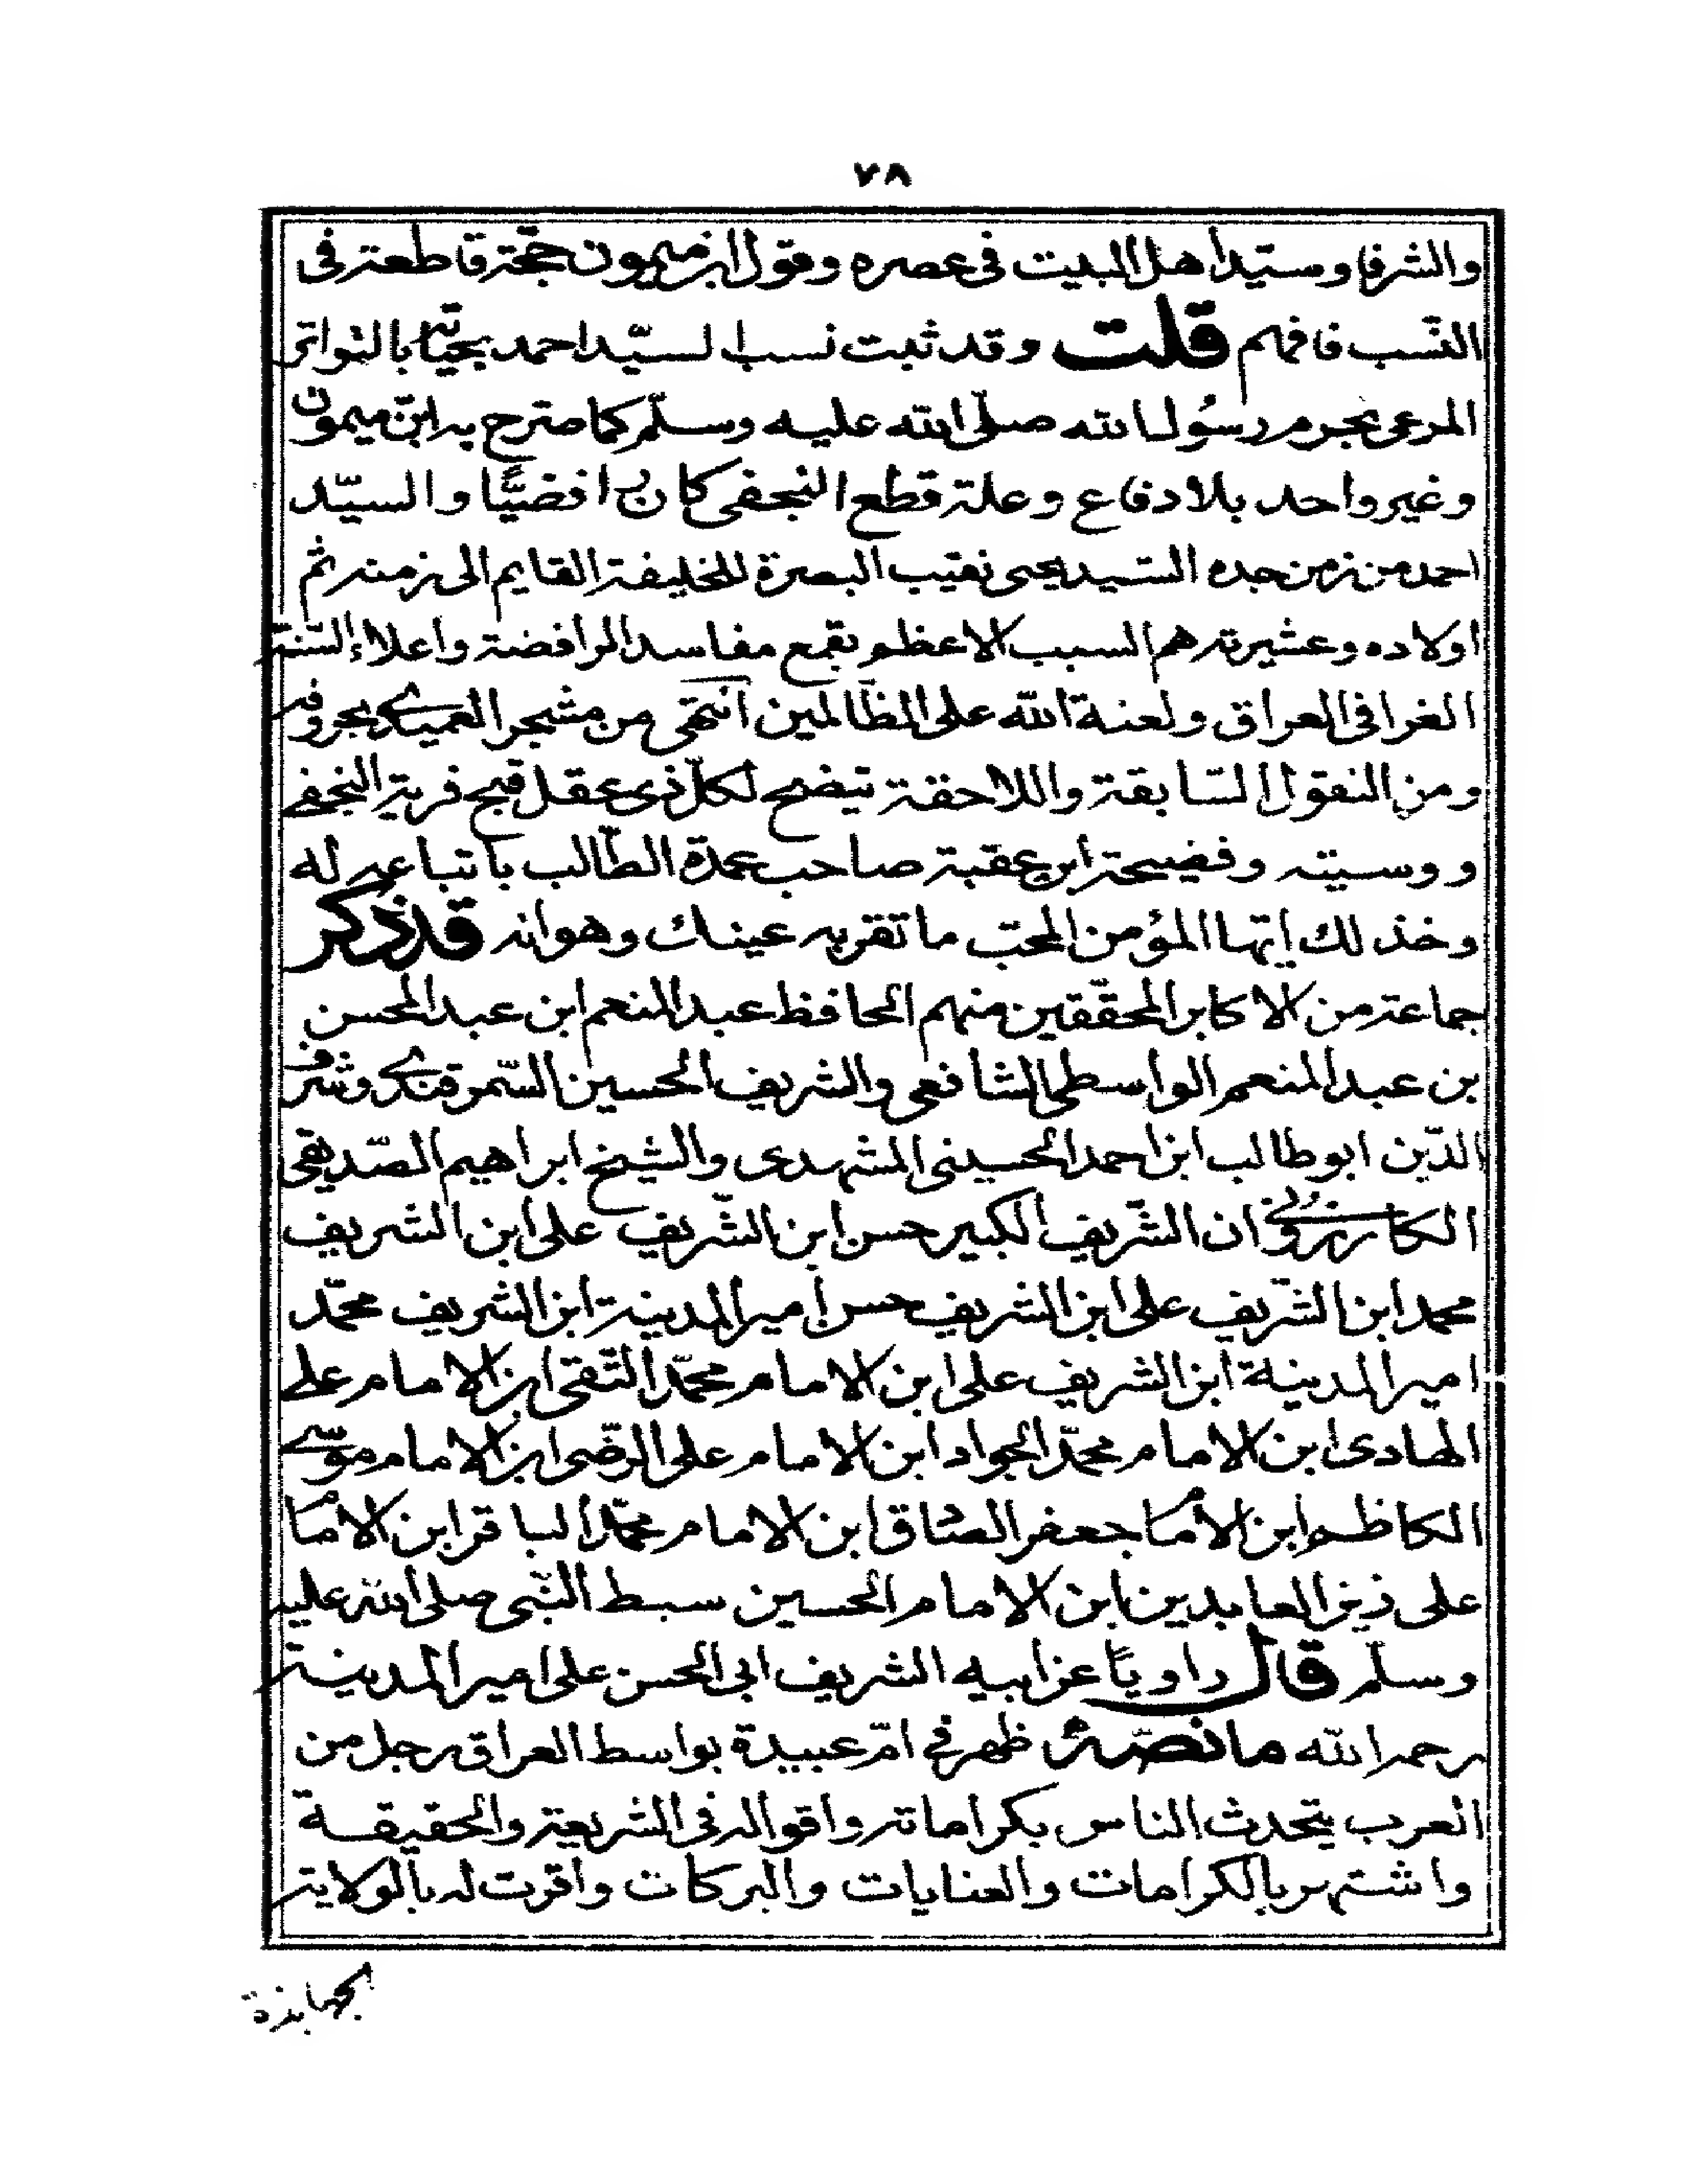 ٧٨
والشرفا وسيّد أهل البيت فى عصره وقول ابن ميمون حجّة قاطعة فى
النّسب فافهم قلت وقد ثبت نسب السيّد احمد بالتواتر
المرعى بحرم رسُول الله صلّى الله عليه وسلّم كما صرّح به ابن ميمون
وغير واحد بلا دفاع وعلة قطع النجفى كان رافضيًّا والسيّد
احمد من زمن جده السّيد يحيى نقيب البصرة للخليفة القايم الى زمنه ثم
اولاده وعشيرته هم السبب الاعظم بقمع مفاسد الرافضة واعلاء السّنة
الغرا فى العراق ولعنة الله على الظّالمين انتهى من مشجر العميدى بحروفه
ومن النقول السّابقة واللاحقة يتضح لكلّ ذى عقل قبح فرية النجفى
ووسيته وفضيحة ابن عقبة صاحب عمدة الطّالب باتباعه له
وخذ لك ايّها المؤمن المحبّ ما تقر به عينك وهو انه قد ذكر
جماعة من الاكابر المحقّقين منهم الحافظ عبد المنعم ابن عبد المحسن
بن عبد المنعم الواسطى الشافعى والشريف الحسين السّمرقندى وشرف
الدّين ابو طالب ابن احمد الحسينى المشهدى والشيخ ابراهيم الصّديقى
الكازرونى ان الشّريف الكبير حسن ابن الشّريف على ابن الشريف
محمد ابن الشّريف على ابن الشريف حسن امير المدينة ابن الشريف محمّد
امير المدينة ابن الشريف على ابن الامام محمّد التّقى ابن الامام على
الهادى ابن الامام محمّد الجواد ابن الامام على الرّضى ابن الامام موسى
الكاظم ابن الأمام جعفر الصّادق ابن الامام محمّد الباقر ابن الامام
على زين العابدين ابن الامام الحسين سبط النّبى صلى الله عليه
وسلّم قال راويًا عن ابيه الشريف ابى الحسن على امير المدينة
رحمه الله ما نصّه ظهر فى امّ عبيدة بواسط العراق رجل من
العرب يتحدث الناس بكراماته واقواله فى الشريعة والحقيقة
واشتهر بالكرامات والعنايات والبركات واقرت له بالولاية
الجهابذة